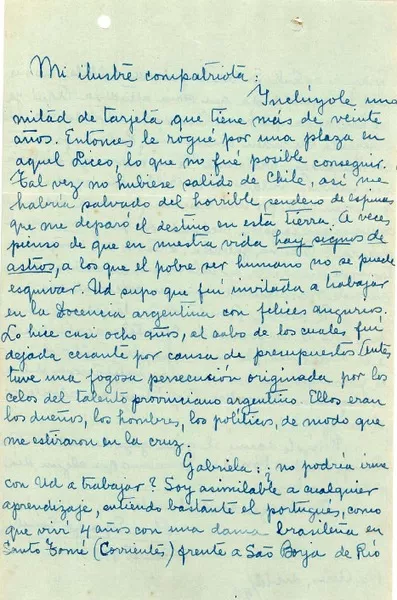 Mi ilustre compatriota:
Inclúyole una
mitad de tarjeta que tiene más de veinte
años. Entonces le rogué por una plaza en
aquel Liceo, lo que no fué posible conseguir.
Tal vez no hubiese salido de Chile, así me
habría salvado del horrible sendero de espinas
que me deparó el destino en esta tierra. A veces
pienso de que en nuestra vida hay signos de
astros, a los que el pobre ser humano no se puede
esquivar. Ud supo que fuí invitada a trabajar
en la Docencia argentina con felices augurios.
Lo hice casi ocho años, el cabo de los cuales fuí
dejada cesante por causa de presupuestos
tuve una fogosa persecución originada por los
celos del talento provinciano argentino. Ellos eran
los dueños, los hombres, los políticos, de modo que
me estiraron en la cruz.
Gabriela: ¿no podría irme
con Ud a trabajar? Soy asimilable a cualquier
aprendizaje, entiendo bastante el portugués, como
que viví 4 años con una dama brasileña en
Santo Tomé (Corrientes) frente a São Borja de Río